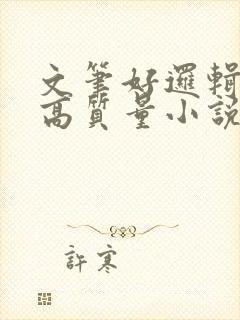 文筆好邏輯
高質量小說
許寒